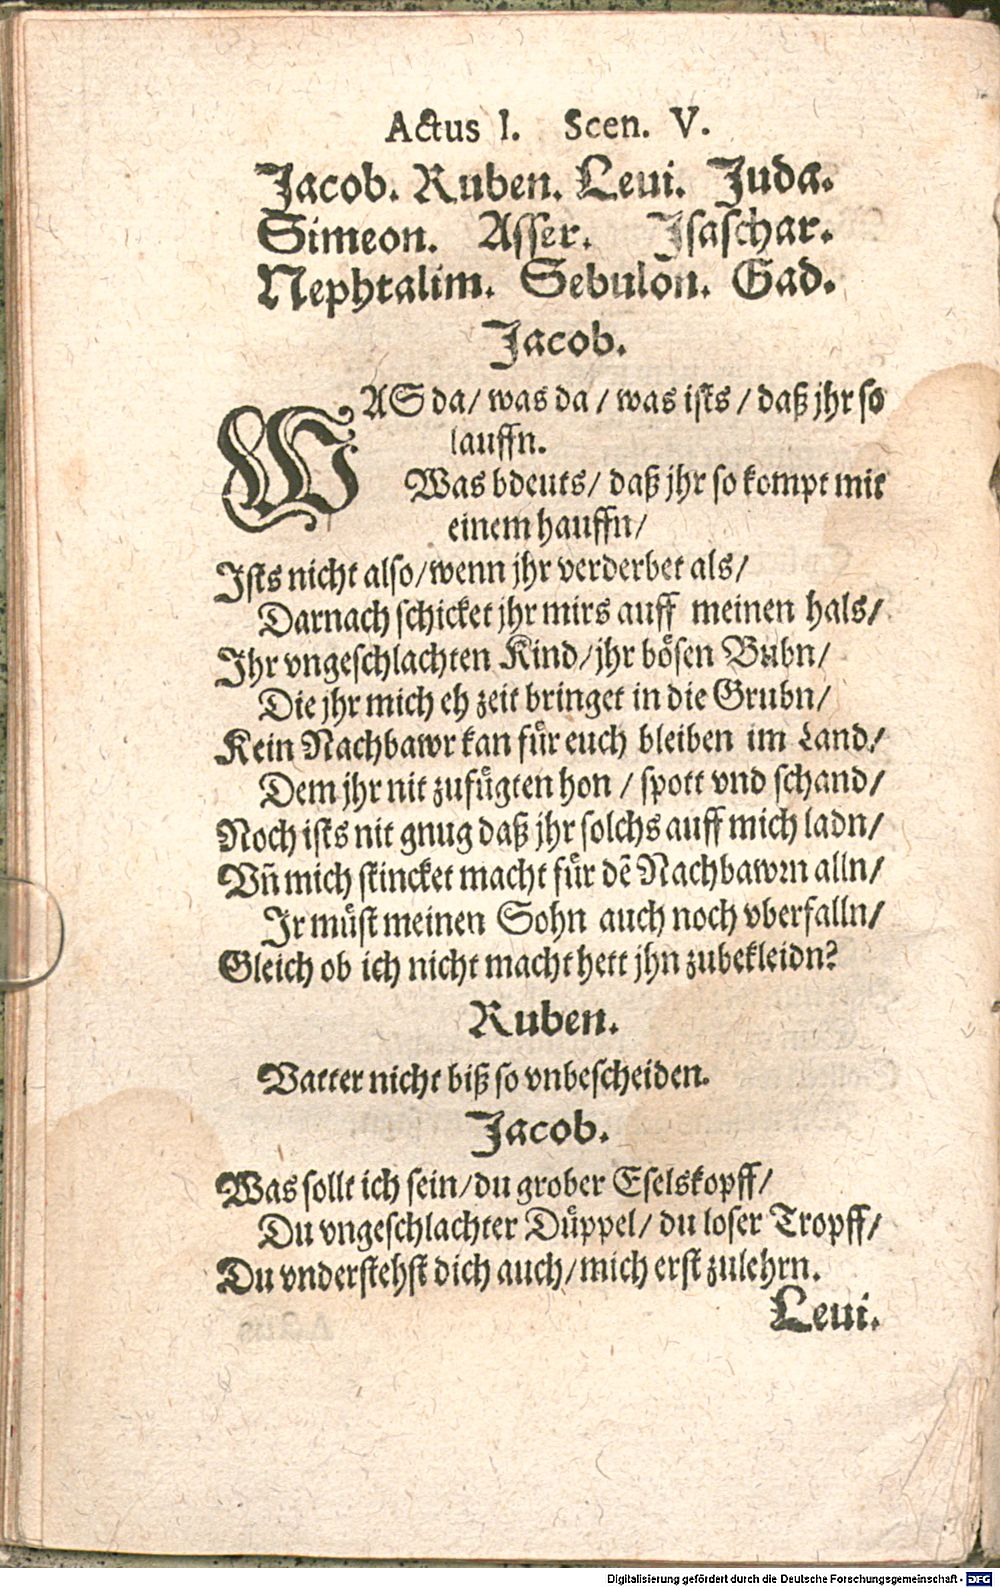 Actus I. Scen. V.
Jacob. Ruben. Leui. Juda.
Simeon. Asser. Isaschar.
Nephtalim. Sebulon. Gad.
Jacob.
WAS da/ was da / was ists / daß jhr so
lauffn.
Was bdeuts/ daß jhr so kompt mit
einem hauffn/
Ists nicht also/ wenn jhr verderbet als/
Darnach schicket jhr mirs auff meinen hals/
Ihr vngeschlachten Kind/ jhr bösen Bubn/
Die jhr mich eh zeit bringet in die Grubn/
Kein Nachbawr kan für euch bleiben im Land/
Dem jhr nit zufügten hon / spott vnd schand/
Noch ists nit gnug daß jhr solchs auff mich ladn/
Vñ mich stincket macht für dē Nachbawrn alln/
Ir müst meinen Sohn auch noch vberfalln/
Gleich ob ich nicht macht hett jhn zubekleidn?
Ruben.
Vatter nicht biß so vnbescheiden.
Jacob.
Was sollt ich sein/ du grober Eselskopff/
Du vngeschlachter Düppel/ du loser Tropff/
Du vnderstehst dich auch/ mich erst zulehrn.
Leui.
Digitalisierung gefördert durch die Deutsche Forschungsgemeinschaft - DFG